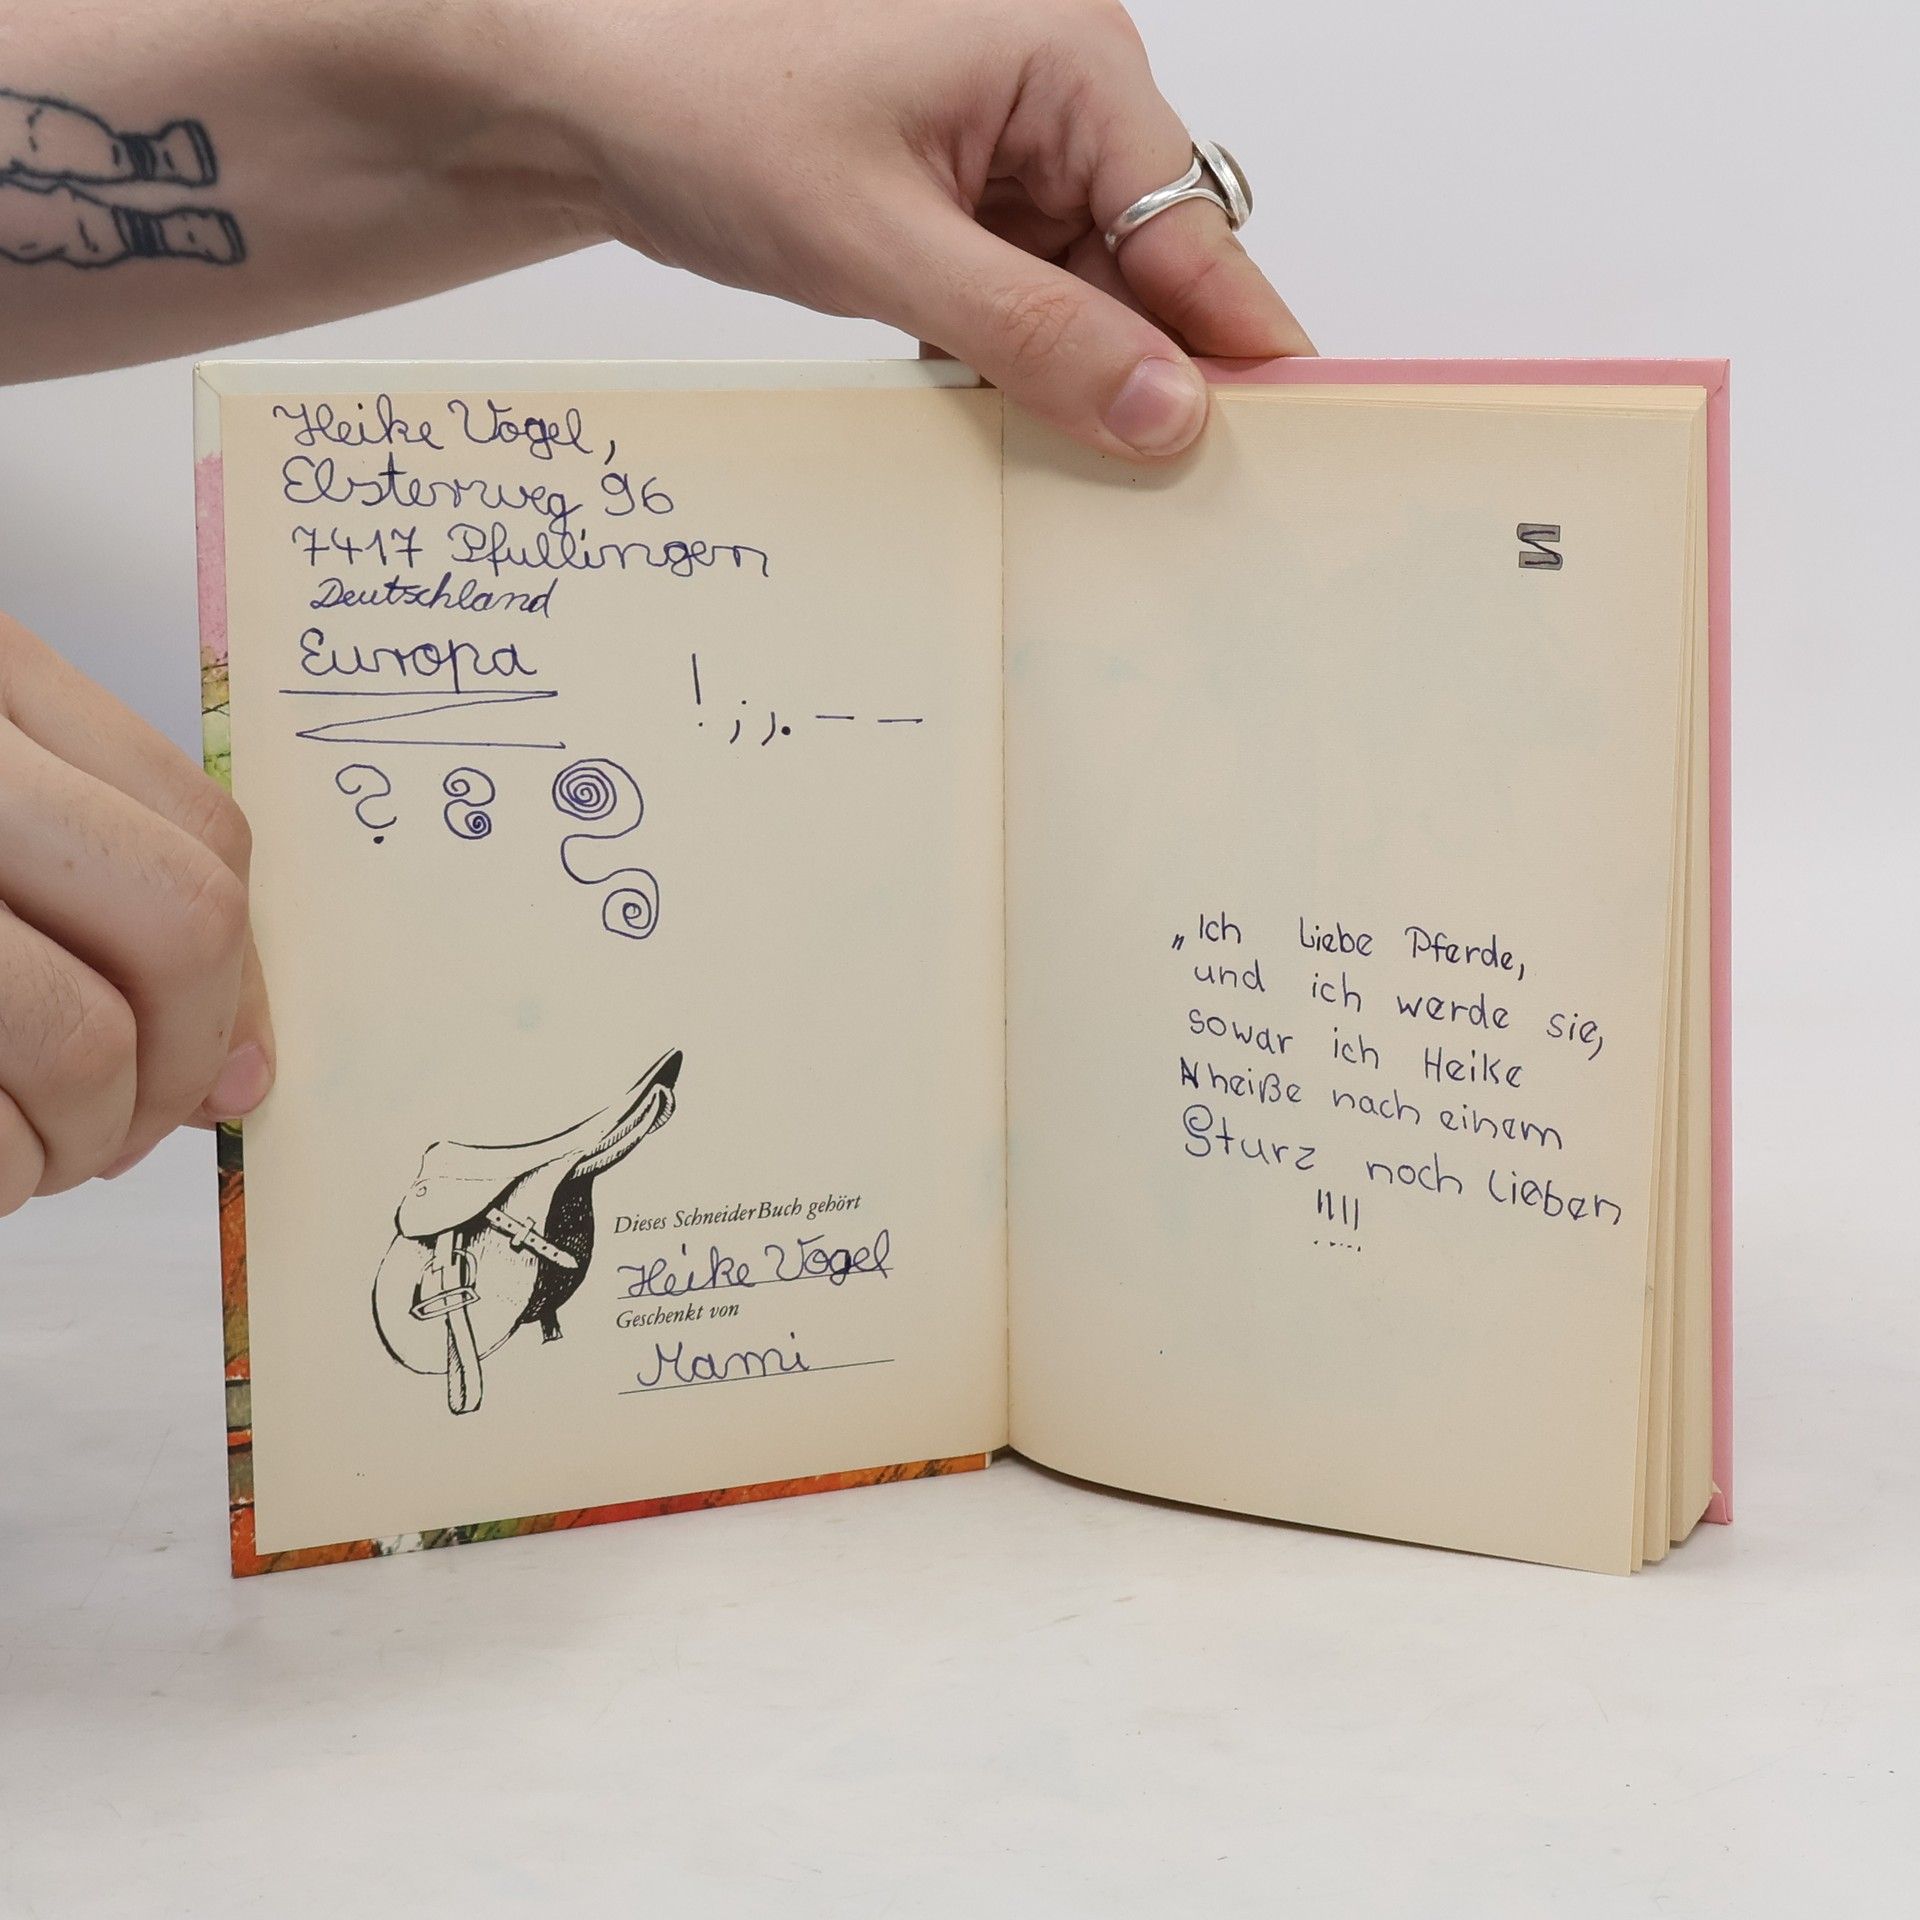 Heike Vogel,
Elsterweg 96
7417 Pfullingen
Deutschland
Europa
! ; ,. — —
?
Dieses SchneiderBuch gehört
Heike Vogel
Geschenkt von
Mami
S
„Ich liebe Pferde,
und ich werde sie,
sowar ich Heike
heiße nach einem
Sturz noch lieben
!!!!